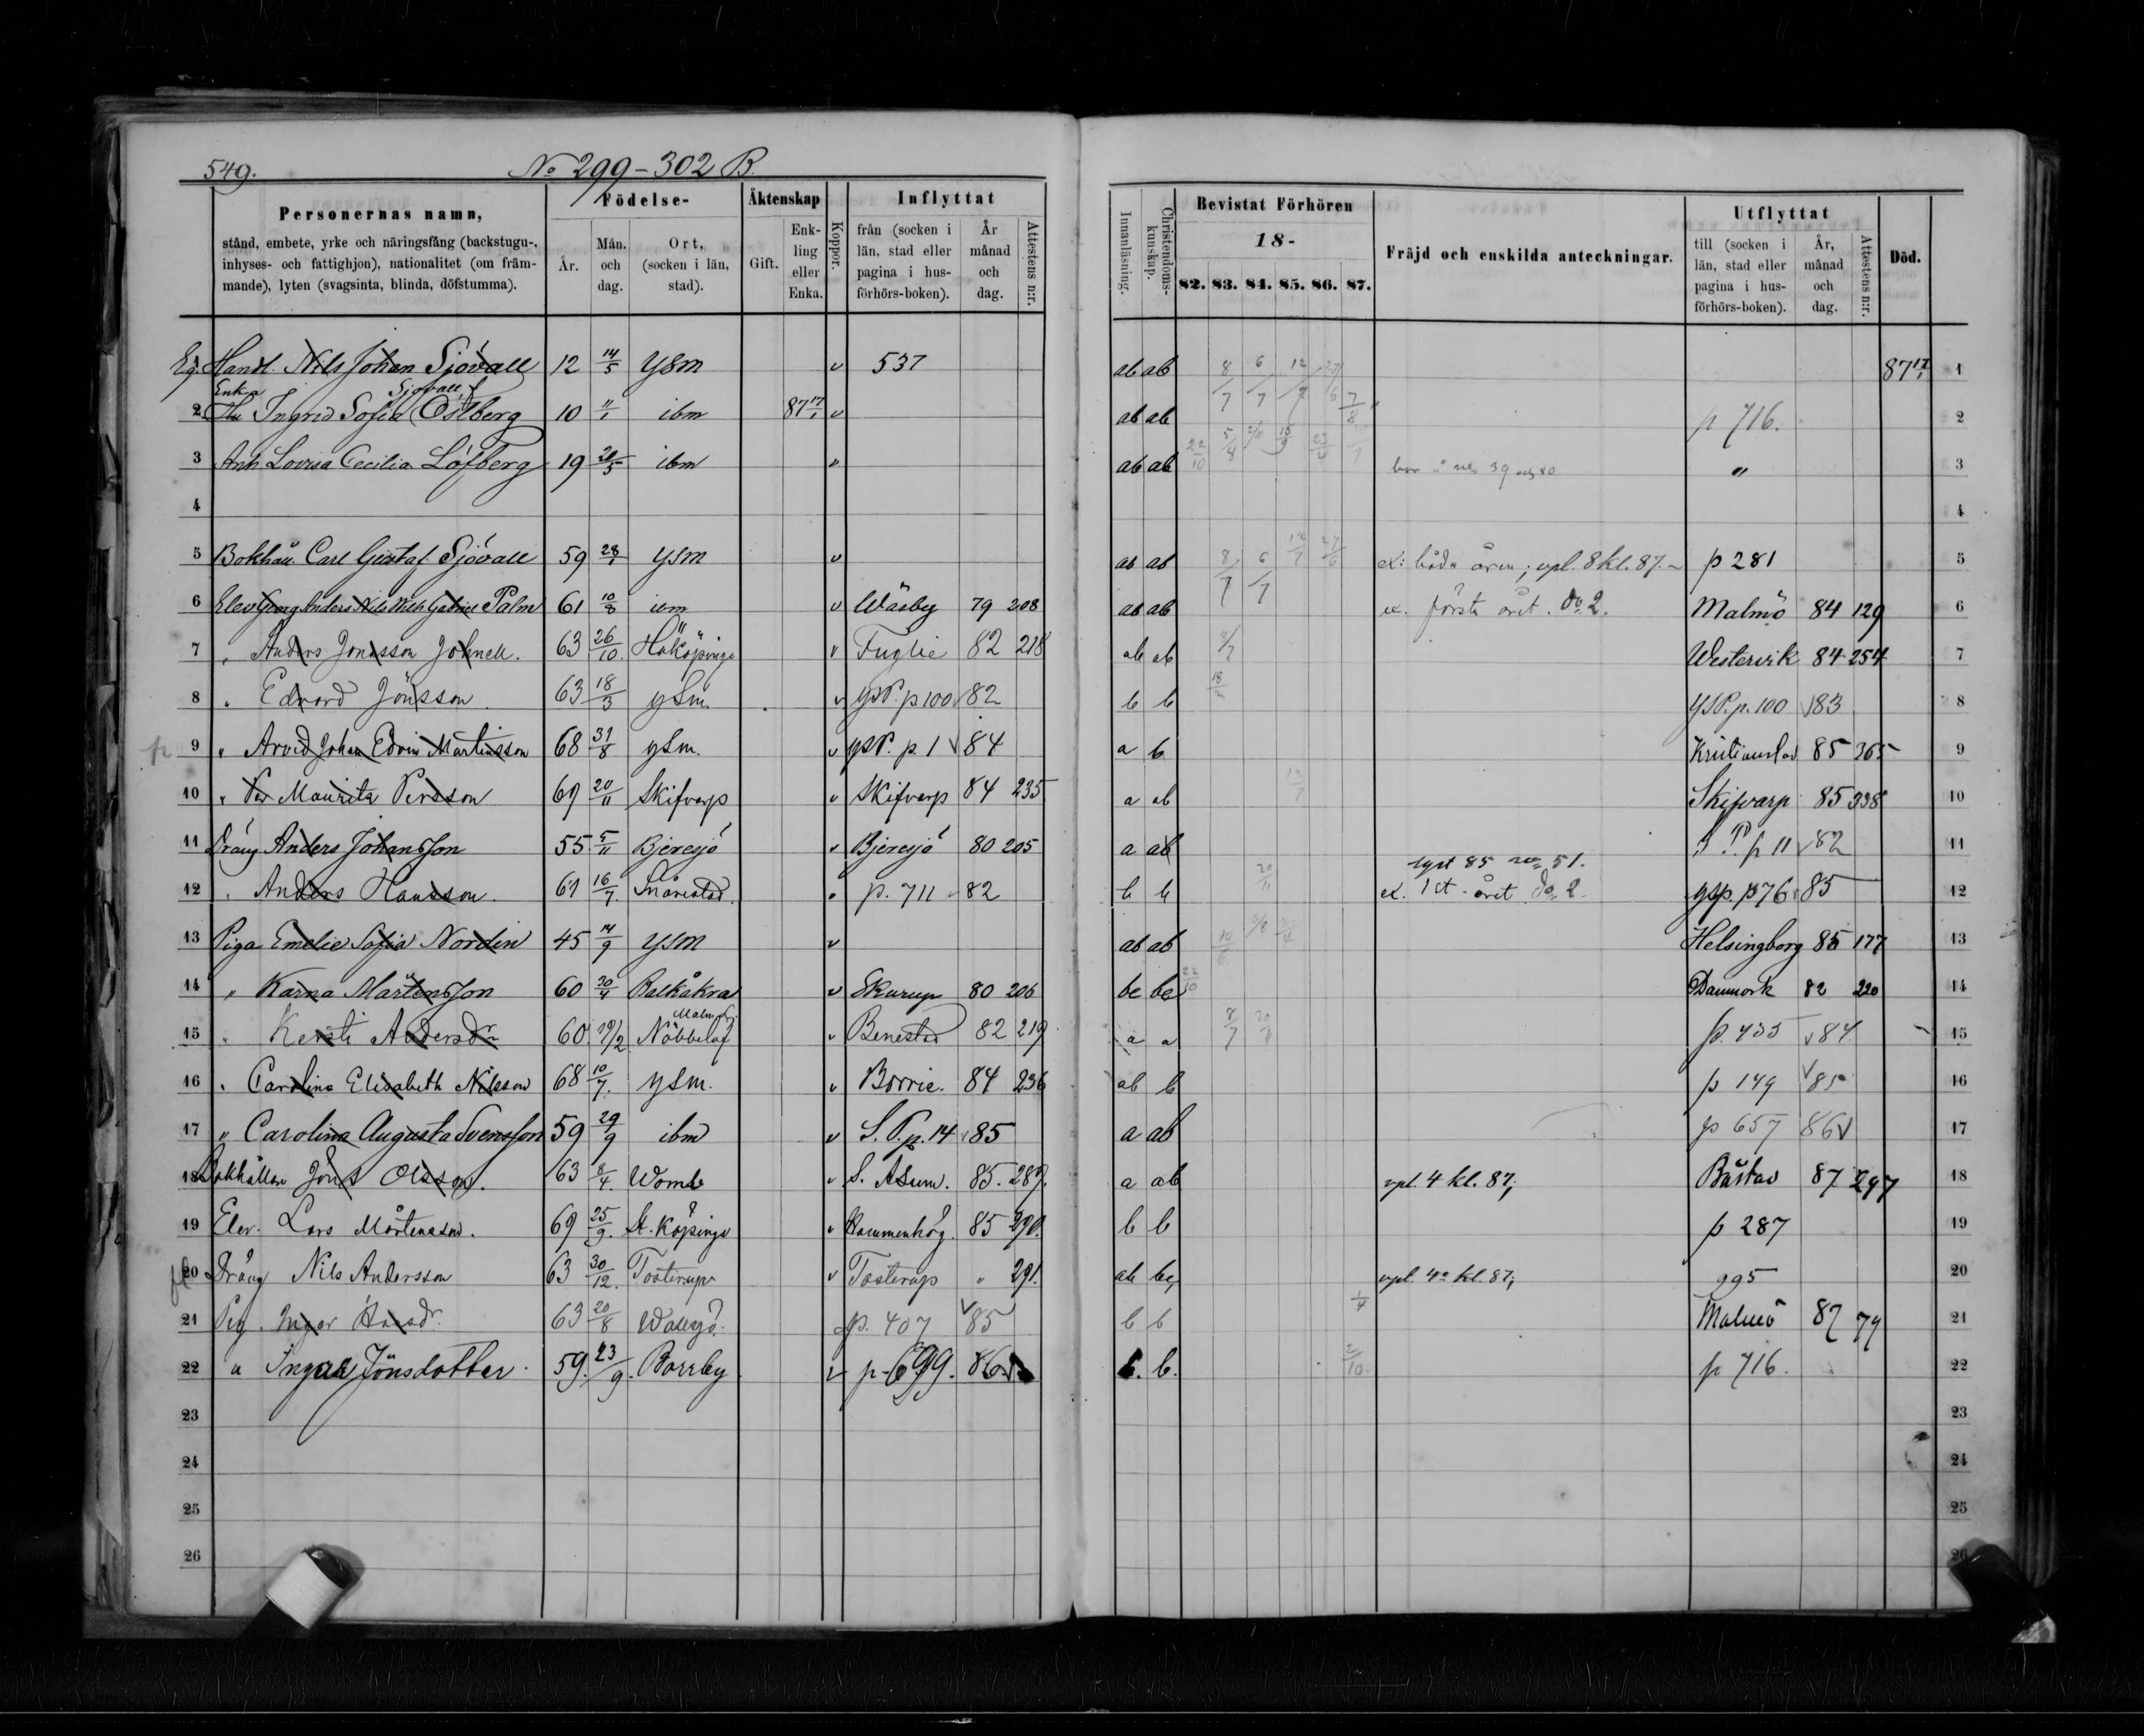 549. No 299-302 B.
Personernas namn, Födelse- Äktenskap Koppor. Inflyttat Innanläsning. Christendoms-kunskap. Bevistat Förhören Fräjd och enskilda anteckningar. Utflyttat Död.
stånd, embete, yrke och näringsfång (backstugu-, inhyses- och fattighjon), nationalitet (om främ-mande), lyten (svagsinta, blinda, döfstumma). År. Mån. och dag. Ort, (socken i län, stad). Gift. Enk-ling eller Enka. från (socken i län, stad eller pagina i hus-förhörs-boken). År månad och dag. Attestens n:r. 18- till (socken i län, stad eller pagina i hus-förhörs-boken). År, månad och dag. Attestens n:r.
82. 83. 84. 85. 86. 87.
Eg. Handl. Nils Johan Sjövall 12 14/5 YSM v 537 ab ab 8/7 6/7 12/7 27/6 87 17/1 1
Enka Sjövall f.
2 Hu Ingrid Sofia Östberg 10 11/1 ibm 87 17/1 v ab ab 7/8 p 716. 2
3 Lovisa Cecilia Löfberg 19 ibm v ab ab 22/10 5/8 39 3
4 4
5 Bokhåll. Carl Gustaf Sjövall 59 28/1 YSM v ab ab 8/7 6/7 12/7 27/6 ex: båda åren; vpl. 8 kl. 87. p 281 5
6 Elev Georg Anders Nils Gabriel Palm 61 10/8 v Wäsby 79 208 ab ab ex. första året. do 2. Malmö 84 129 6
7 " Anders Jonasson Johnell. 63 26/10 Håköpinge v Fuglie 82 218 ab ab Westervik 84 254 7
8 " Edvard Jönsson 63 18/3 YSM. v YSP. p 100 v 82 b b YSP. p. 100 v 83 8
9 " Arvid Johan Edvin Mårtensson 68 31/8 YSM. v YSP. p. 1 v 84 a b Kristianstad 85 365 9
10 " Per Mauritz Persson 69 20/11 Skifvarp v Skifvarp 84 235 a ab 12/7 Skifvarp 85 338 10
11 Dräng Anders Johansson 55 5/11 Bjeresjö v Bjeresjö 80 205 a ab p 11 v 82 11
lyst 85 no 51.
12 " Anders Hansson. 61 16/7. Snårestad. p. 711 82 b b 20/11 ex. 1st året do 2. ysp. p 76 v 85 12
13 Piga Emelie Sofia Nordin 45 14/9 YSM v ab ab Helsingborg 85 177 13
14 " Karna Mårtensson 60 Balkåkra v Skurup 80 206 bc bc 22/10 Danmark 82 220 14
15 " Kersti Andersdr 60 19/2 Nöbbelöf Malmöh. v Benestad 82 219 a a 8/7 p. 435 v 84 15
16 " Carolina Elisabeth Nilsson 68 10/7. YSM. v Borrie. 84 236 ab b p 149 v 85 16
17 " Carolina Augusta Svensson 59 29/9 ibm v S. P. p. 14 v 85 a ab p 657 86 v 17
18 Bokhållare Jöns Olsson. 63 8/4. Womb v S. Åsum. 85. 289. a ab vpl. 4 kl. 87; Båstad 87 297 18
19 Elev. Lars Mårtensson. 69 25/9. St. Köpinge v Hammenhög. 85 290. b b p 287 19
20 Dräng Nils Andersson 63 30/12. Tosterup v Tosterup " 291. ab bc, vpl. 4e kl. 87; 995 20
21 Pig. Inger Hansdr. 63 20/8 Wallsjö. p. 407 v 85 b b 1/4 Malmö 87 79 21
22 " Ingar Jönsdotter. 59. 23/9. Borrby v p. 699. 86. b. b. 2/10. p 716. 22
23 23
24 24
25 25
26 26